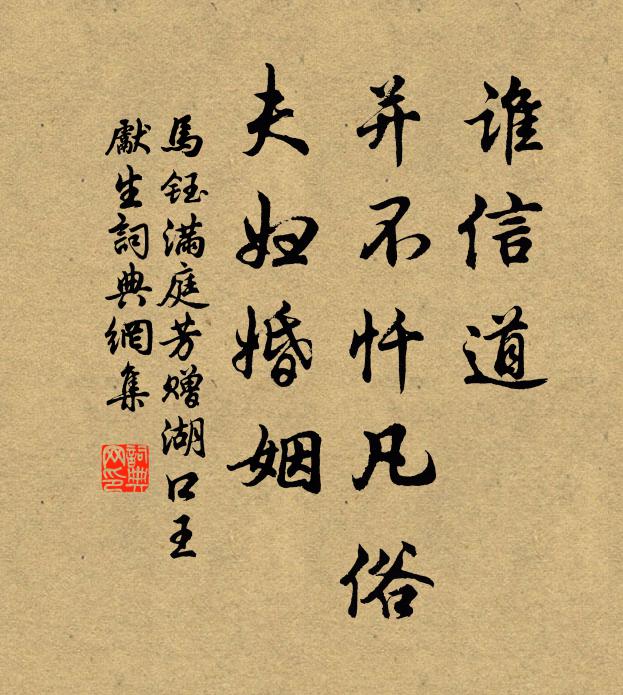 谁信道
并不忏凡俗
夫妇婚姻
馬鈺满庭芳赠湖口王
獻生詞典網集
詞典網印